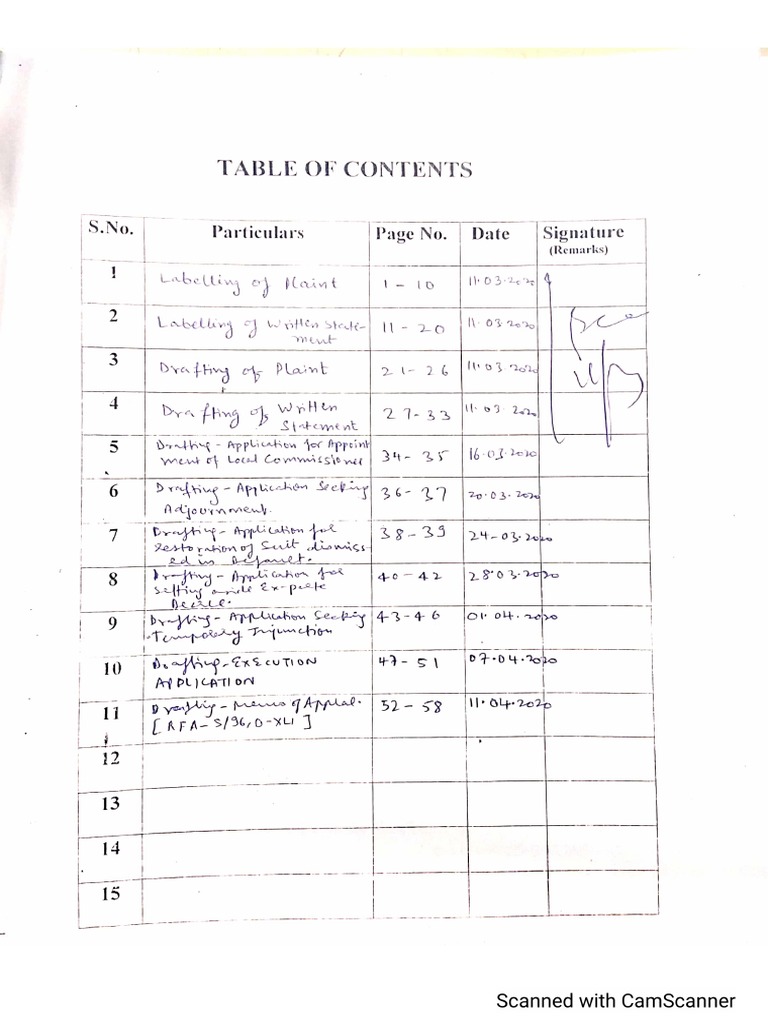 TABLE OF CONTENTS
S.No. Particulars Page No. Date Signature
(Remarks)
1 Labelling of Plaint 1 - 10 11.03.2020
2 Labelling of Written State- 11 - 20 11.03.2020
ment
3 Drafting of Plaint 21 - 26 11.03.2020
4 Drafting of Written 27 - 33 11.03.2020
Statement
5 Drafting - Application for Appoint
ment of Local Commissioner 34 - 35 16.03.2020
6 Drafting - Application Seeking 36 - 37 20.03.2020
Adjournment.
7 Drafting - Application for 38 - 39 24-03.2020
restoration of Suit dismiss-
ed in Default.
8 Drafting - Application for 40 - 42 28.03.2020
Setting aside Ex-parte
Decree.
9 Drafting - Application Seeking 43 - 46 01.04.2020
Temporary Injunction
10 Drafting - EXECUTION 47 - 51 07.04.2020
APPLICATION
11 Drafting - Memo of Appeal. 52 - 58 11.04.2020
[RFA - S/96, O-XLI]
12
13
14
15
Scanned with CamScanner